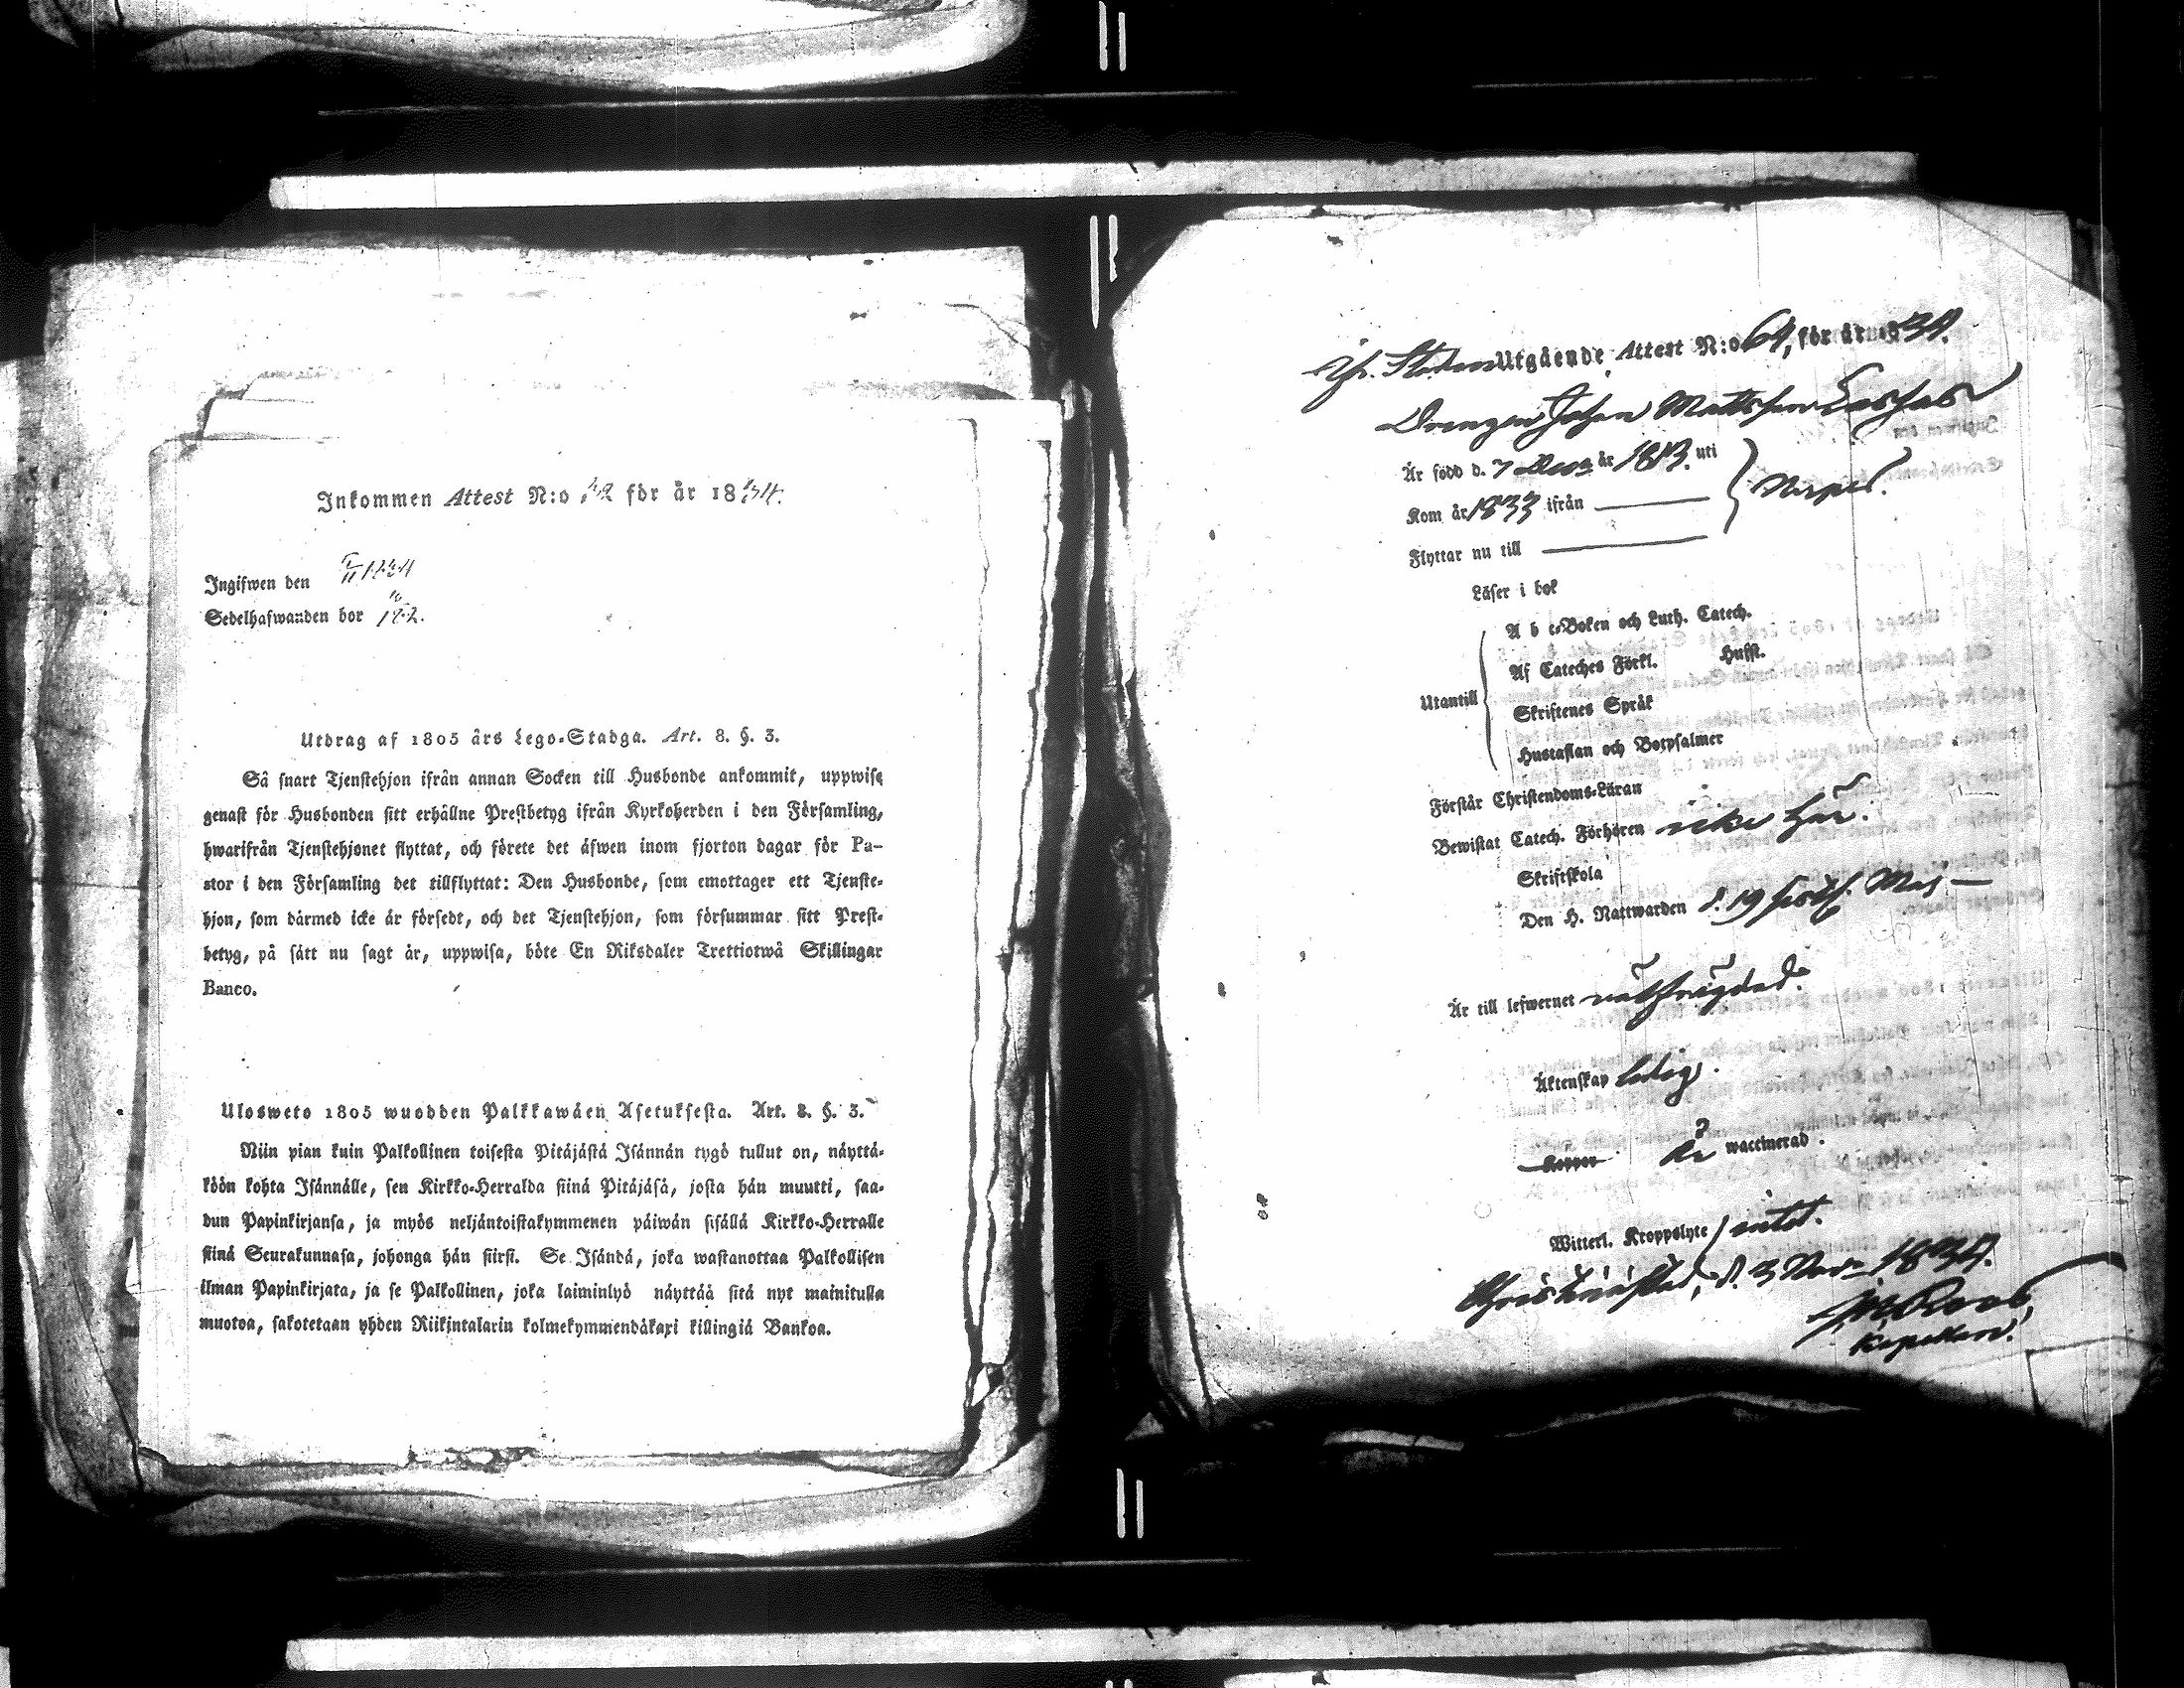 Inkommen Attest N:o 32 för år 1834.
Ingifwen den 1834
Sedelhafwanden bor
Utdrag af 1805 års Lego-Stadga. Art. 8. §. 3.
Så snart Tjenstehjon ifrån annan Socken till Husbonde ankommit, uppwise
genast för Husbonden sitt erhållne Prestbetyg ifrån Kyrkoherden i den Församling,
hwarifrån Tjenstehjonet flyttat, och förete det äfwen inom fjorton dagar för Pa-
stor i den Församling det tillflyttat: Den Husbonde, som emottager ett Tjenste-
hjon, som därmed icke är försedt, och det Tjenstehjon, som försummar sitt Prest-
betyg, på sätt nu sagt är, uppwisa, böte En Riksdaler Trettiotwå Skillingar
Banco.
Ulosweto 1805 wuodden Palkkawäen Asetuksesta. Art. 8. §. 3.
Niin pian kuin Palkollinen toisesta Pitäjästä Isännän tygö tullut on, näyttä-
köön kohta Isännälle, sen Kirkko-Herralda siinä Pitäjäsä, josta hän muutti, saa-
dun Papinkirjansa, ja myös neljäntoistakymmenen päiwän sisällä Kirkko-Herralle
siinä Seurakunnasa, johonga hän siirsi. Se Isändä, joka wastanottaa Palkollisen
ilman Papinkirjata, ja se Palkollinen, joka laiminlyö näyttää sitä nyt mainitulla
muotoa, sakotetaan yhden Riikintalarin kolmekymmendäkaxi killingiä Bankoa.
Utgående Attest N:o 64, för år 1834.
Drengen Johan Mattsson
Är född d. 7 Dec. år 1813. uti
Kom år 1833 ifrån
Närpes.
Flyttar nu till
Läser i bok
A b c-Boken och Luth. Catech.
Af Cateches Förkl. Hussl.
Utantill
Skriftenes Språk
Hustaflan och Botpsalmer
Förstår Christendoms-Läran
Bewistat Catech. Förhören icke här.
Skriftskola
Den H. Nattwarden d. 19 sistl. Maj
Är till lefwernet wälfrägdad.
Äktenskap ledig.
Koppor är waccinerad.
Witterl. Kroppslyte intet.
Christinæstad, d. 3 Nov. 1834.
Roos,
Kapellan.